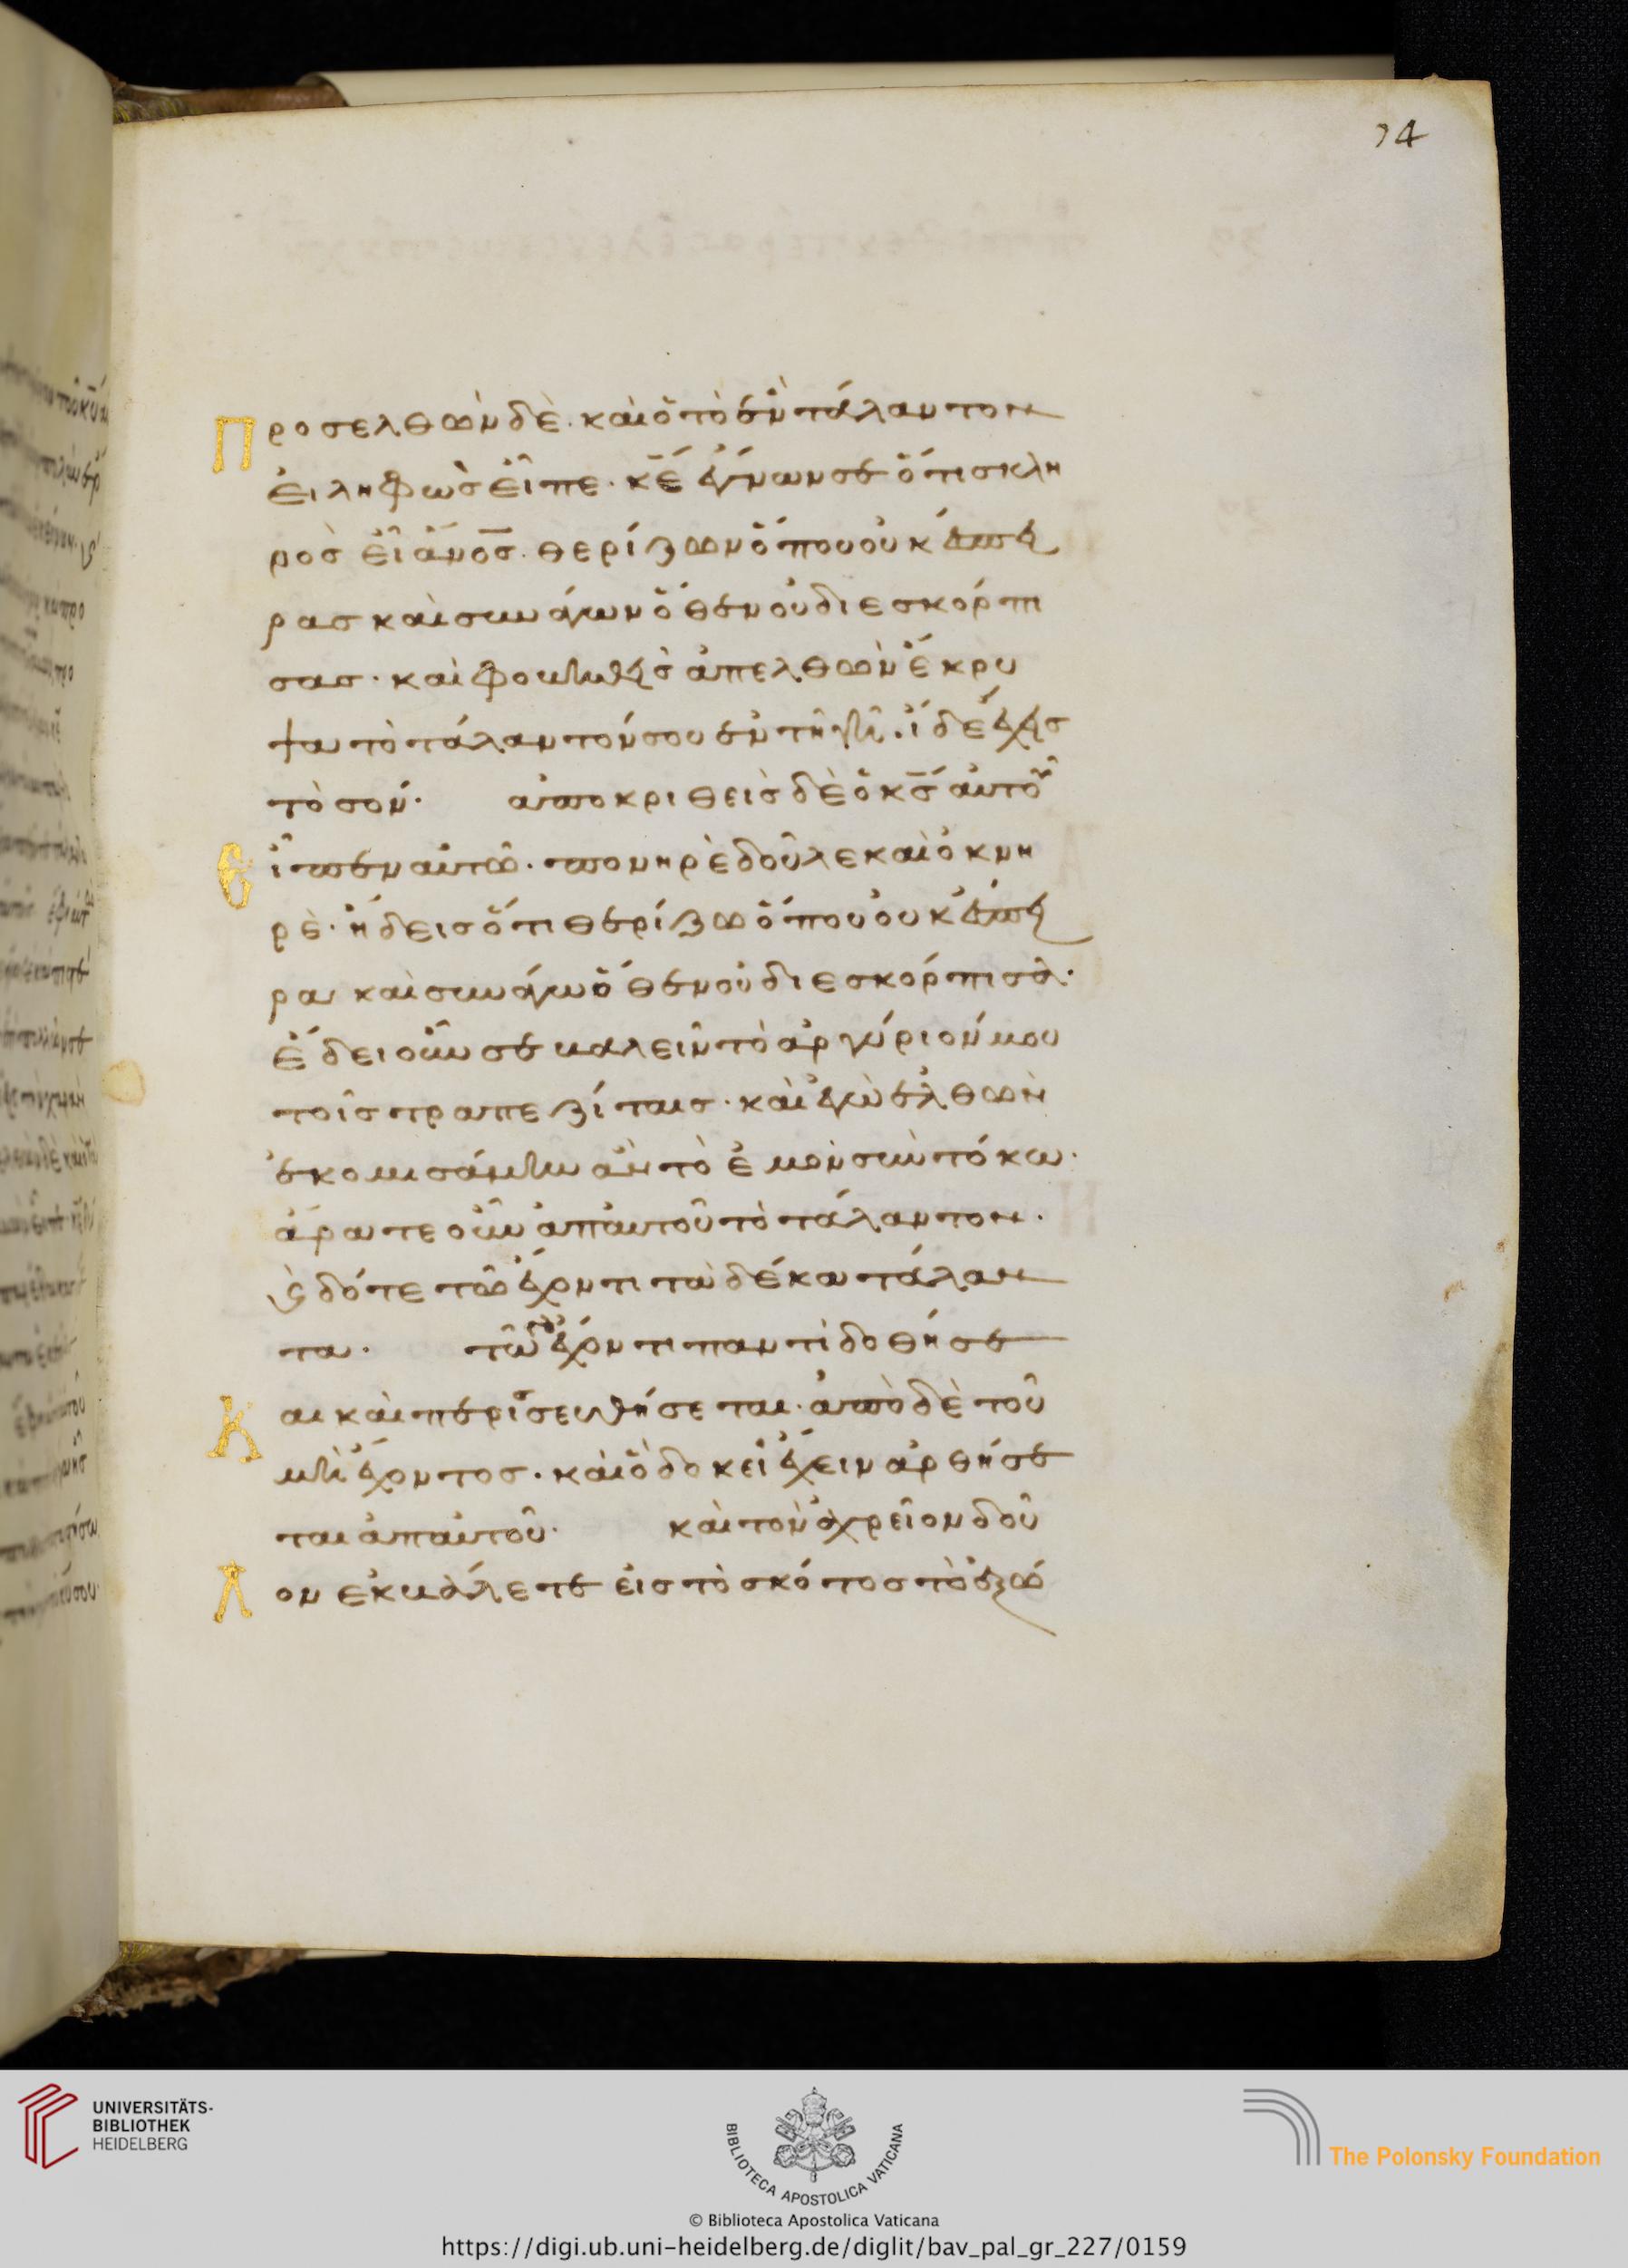 74
Προσελθὼν δὲ. καὶ ὁ τὸ ἓν τάλαντον
εἰληφὼς εἶπε· κ̅ε̅ ἔγνων σε ὅτι σκλη
ρὸς εἶ ἄν̅ο̅ς̅. θερίζων ὅπου οὐκ ἔσπει
ρας καὶ συνάγων ὅθεν οὐ διεσκόρπι
σας· καὶ φοβηθεὶς ἀπελθὼν ἔκρυ
ψα τὸ τάλαντόν σου ἐν τῇ γῇ. ἴδε ἔχεις
τὸ σόν· ἀποκριθεὶς δὲ ὁ κ̅ς̅ αὐτοῦ
Εἶπεν αὐτῶ· πονηρὲ δοῦλε καὶ ὀκνη
ρὲ· ἤδεις ὅτι θερίζω ὅπου οὐκ ἔσπει
ρα καὶ συνάγω ὅθεν οὐ διεσκόρπισα·
ἔδει οὖν σε βαλεῖν τὸ ἀργύριόν μου
τοῖς τραπεζίταις· καὶ ἐγὼ ἐλθὼν
ἐκομισάμην ἂν τὸ ἐμὸν σὺν τόκω·
ἄρατε οὖν ἀπ' αὐτοῦ τὸ τάλαντον·
ϗ δότε τῶ ἔχοντι τὰ δέκα τάλαν
τα· τῶ γὰρ ἔχοντι παντὶ δοθήσε
Kαι καὶ περισσευθήσεται· ἀπὸ δὲ τοῦ
μὴ ἔχοντος· καὶ ὃ δοκεῖ ἔχειν ἀρθήσε
ται ἀπ' αὐτοῦ· καὶ τὸν ἀχρεῖον δοῦ
Λον ἐκβάλετε εἰς τὸ σκότος τὸ ἐξώ
UNIVERSITÄTS-
BIBLIOTHEK
HEIDELBERG
BIBLIOTECA APOSTOLICA VATICANA
The Polonsky Foundation
© Biblioteca Apostolica Vaticana
https://digi.ub.uni-heidelberg.de/diglit/bav_pal_gr_227/0159